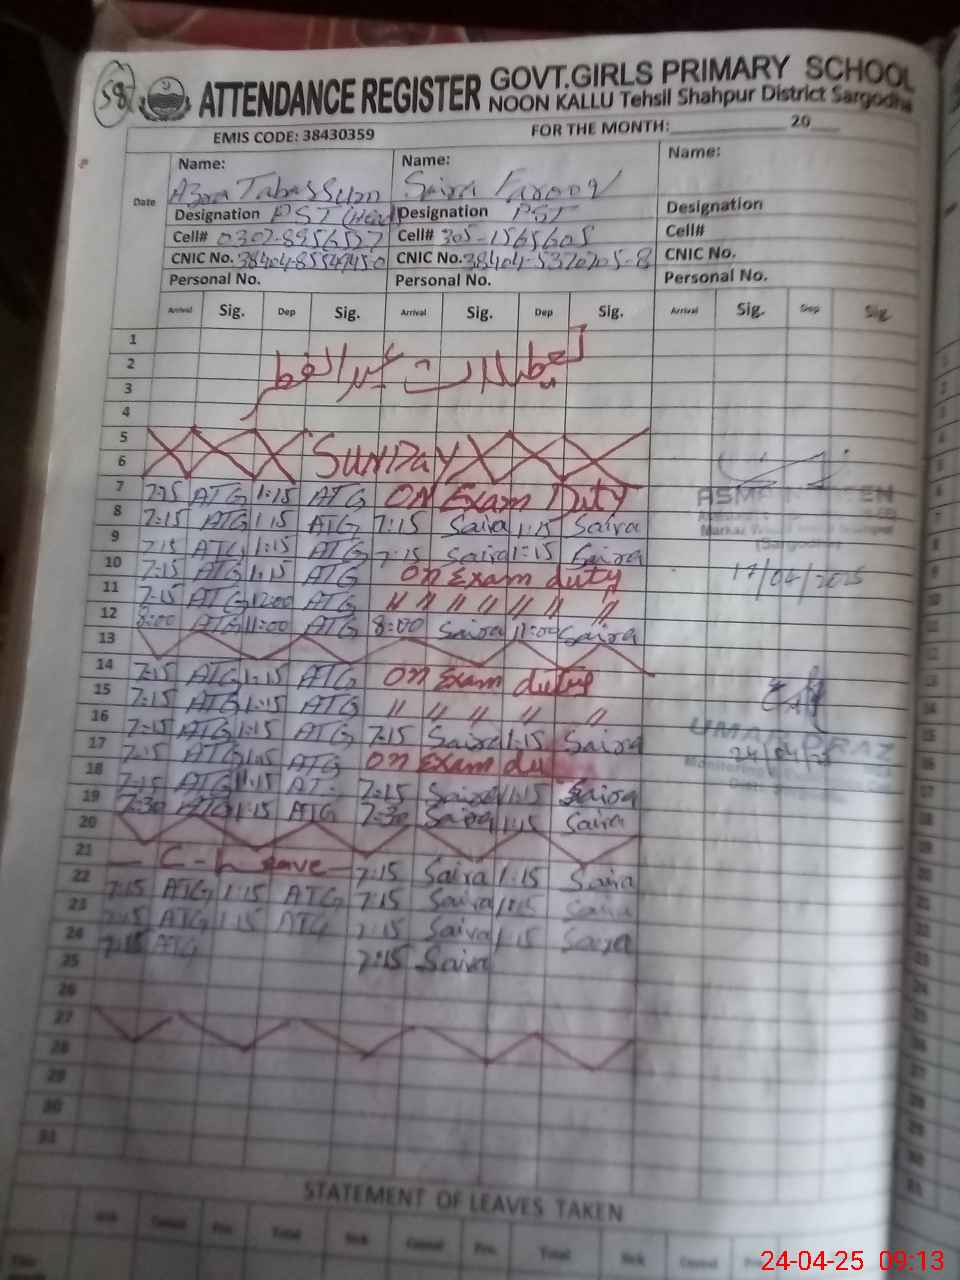 58
ATTENDANCE REGISTER GOVT.GIRLS PRIMARY SCHOOL
NOON KALLU Tehsil Shahpur District Sargodha
EMIS CODE: 38430359 FOR THE MONTH: 20
Date Name: Name: Name:
Azra Tabassum Saira Farooq
Designation PST (Head) Designation PST Designation
Cell# Cell# 305-1565605 Cell#
CNIC No. CNIC No. 38404-5370705-8 CNIC No.
Personal No. Personal No. Personal No.
Arrival Sig. Dep Sig. Arrival Sig. Dep Sig. Arrival Sig. Dep Sig.
1
2 تعطیلات عید الفطر
3
4
5
6 SUNDAY
7 7:15 ATG 1:15 ATG ON Exam Duty
8 7:15 ATG 1:15 ATG 7:15 Saira 1:15 Saira
9 7:15 ATG 1:15 ATG 7:15 Saira 1:15 Saira
10 7:15 ATG 1:15 ATG On Exam duty
11 7:15 ATG 12:00 ATG " " " " " " "
12 8:00 ATG 11:00 ATG 8:00 Saira 11:00 Saira
13
14 7:15 ATG 1:15 ATG On Exam duty
15 7:15 ATG 1:15 ATG " " " " "
16 7:15 ATG 1:15 ATG 7:15 Saira 1:15 Saira
17 7:15 ATG 1:15 ATG On Exam du
18 7:15 ATG 1:15 AT 7:15 Saira 1:15 Saira
19 7:30 ATG 1:15 ATG 7:30 Saira 1:15 Saira
20
21 C-Leave 7:15 Saira 1:15 Saira
22 7:15 ATG 1:15 ATG 7:15 Saira 1:15 Saira
23 7:15 ATG 1:15 ATG 7:15 Saira 1:15 Saira
24 7:15 ATG 7:15 Saira
25
26
27
28
29
30
31
ASMA
(Sargodha)
17/04/2025
UMAR DRAZ
24/04/25
STATEMENT OF LEAVES TAKEN
Casual Total Sick Casual Total Sick Casual
24-04-25 09:13